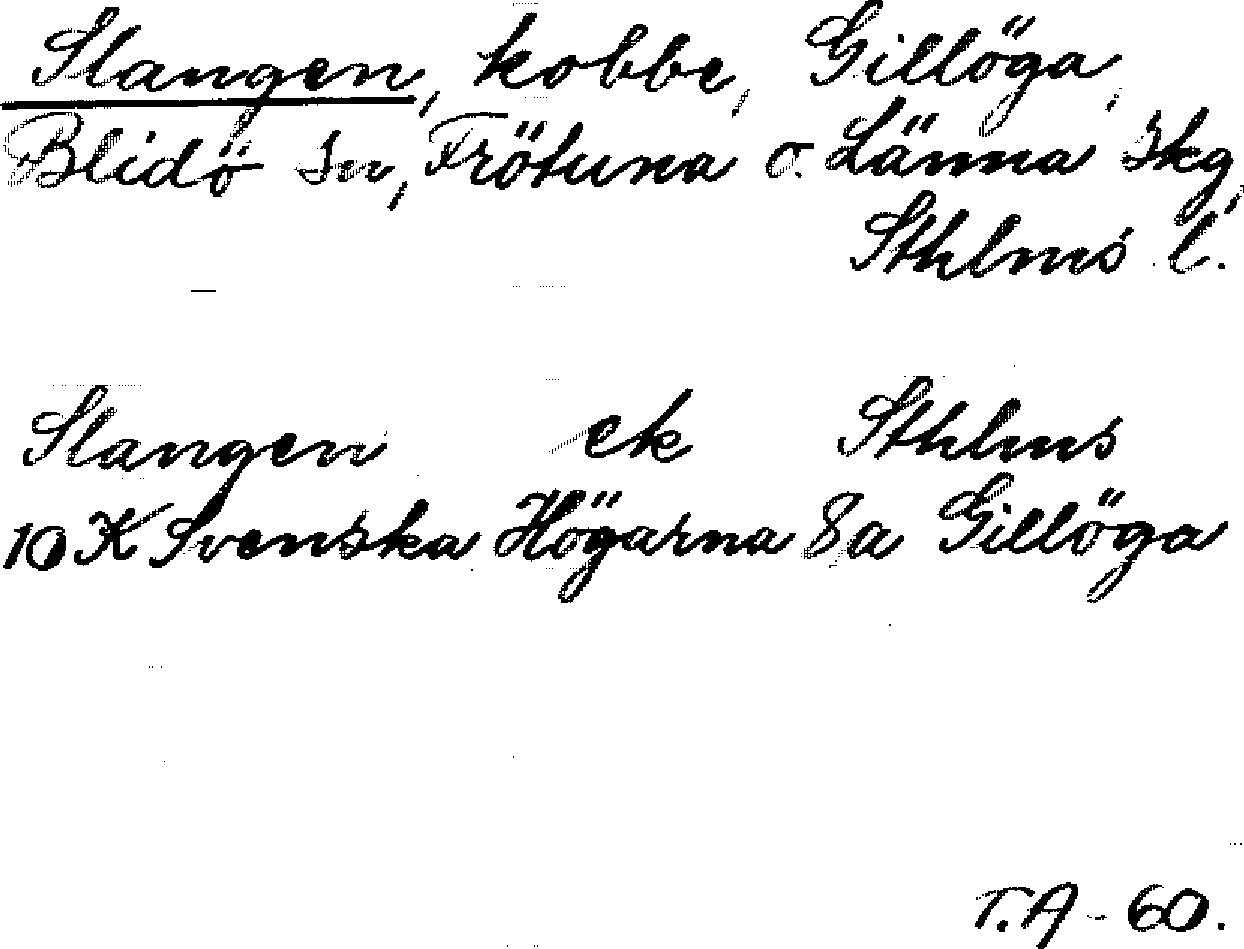 Slangen, kobbe, Gillöga,
Blidö sn, Frötuna o. Länna skg,
Sthlms l.
Slangen ek Sthlms
10 K Svenska Högarna 8a Gillöga
T.A - 60.